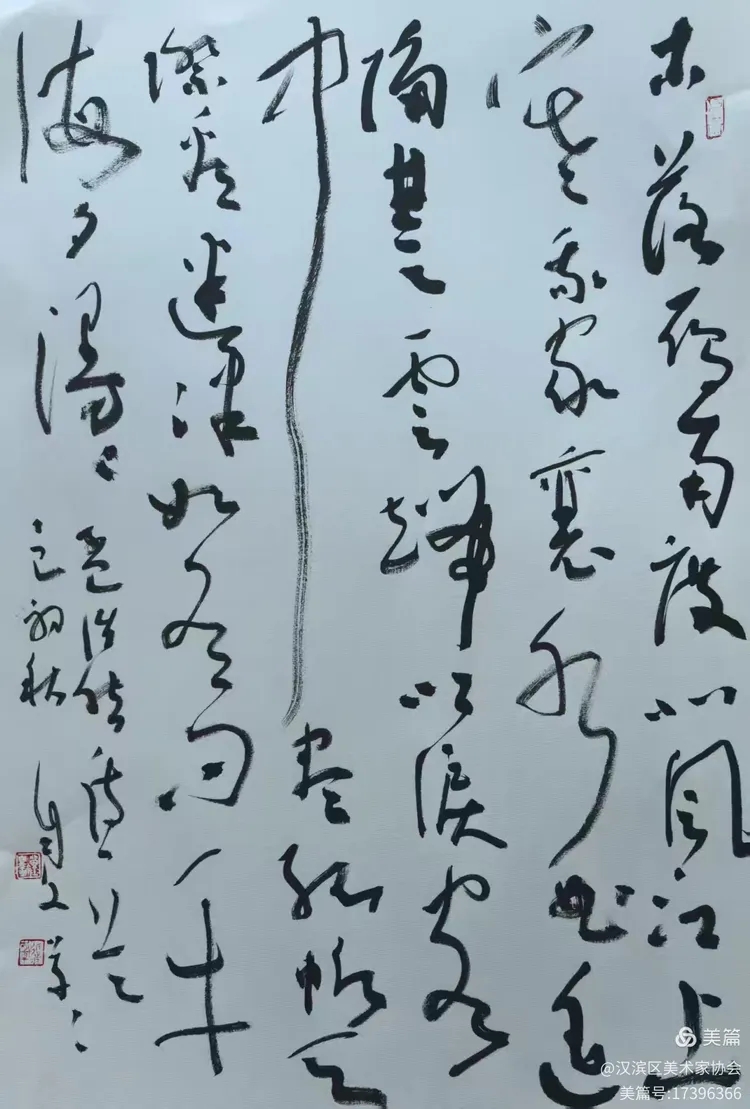 木落雁南度北風江上
寒我家襄水曲遙
隔楚雲端鄉淚客
中盡孤帆天
際看迷津欲有問平
海夕漫〻
孟浩然
巳初秋
美篇
@汉滨区美术家协会
美篇号:17396366